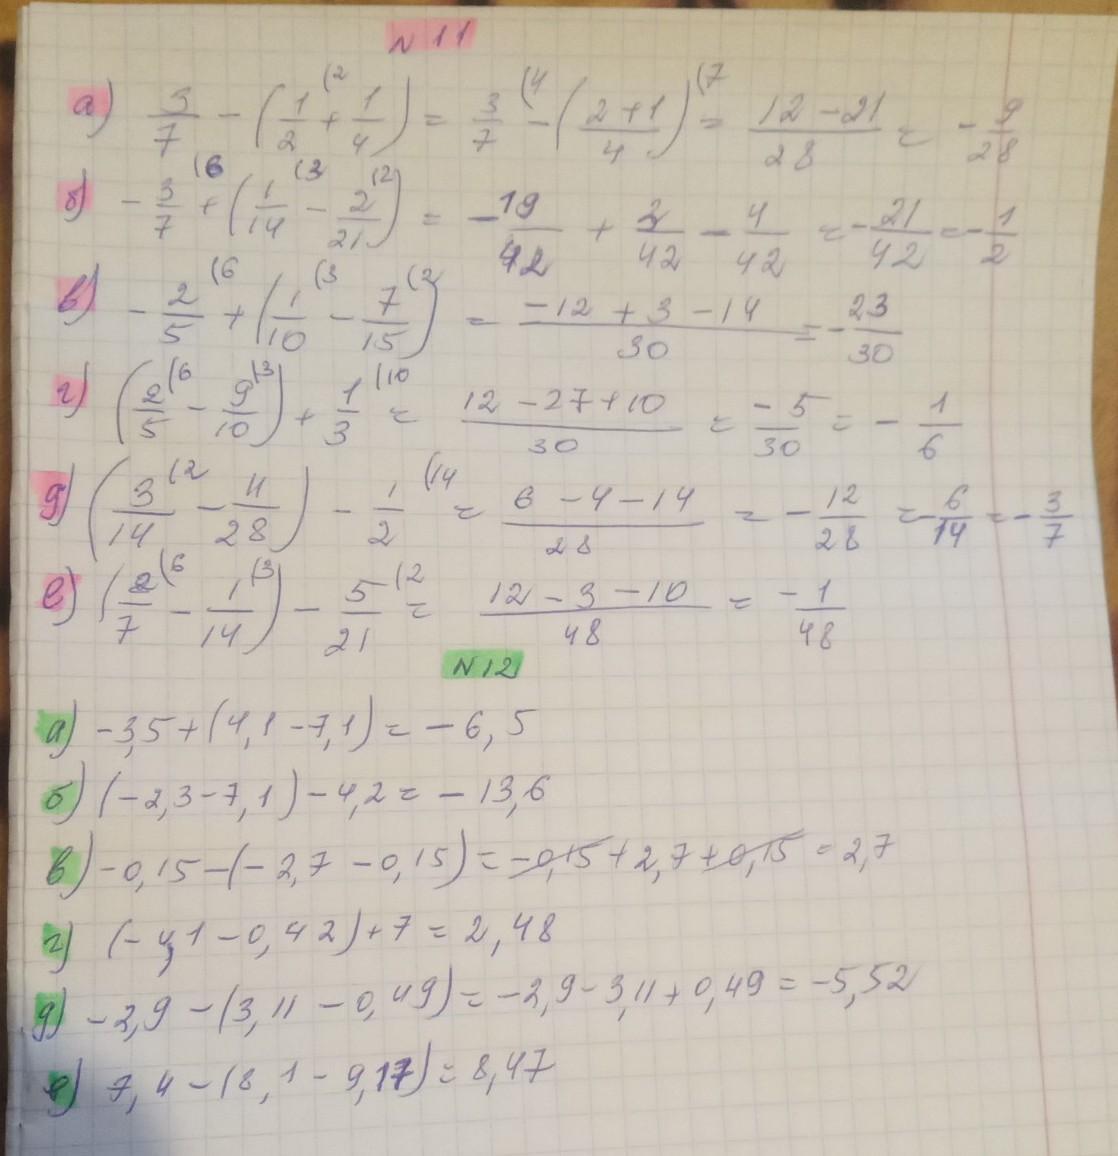 N 11
а) 3/7 - (1/2 (2 + 1/4) = 3/7 (4 - ((2+1)/4) (7 = (12-21)/28 = -9/28
б) -3/7 (6 + (1/14 (3 - 2/21 (2) = -19/42 + 3/42 - 4/42 = -21/42 = -1/2
в) -2/5 (6 + (1/10 (3 - 7/15 (2) = (-12+3-14)/30 = -23/30
г) (2/5 (6 - 9/10 (3) + 1/3 (10 = (12-27+10)/30 = -5/30 = -1/6
д) (3/14 (2 - 4/28) - 1/2 (14 = (6-4-14)/28 = -12/28 = -6/14 = -3/7
е) (2/7 (6 - 1/14 (3) - 5/21 (2 = (12-3-10)/48 = -1/48
N 12
а) -3,5+(4,1-7,1)=-6,5
б) (-2,3-7,1)-4,2=-13,6
в) -0,15-(-2,7-0,15)=-0,15+2,7+0,15=2,7
г) (-4,1-0,42)+7=2,48
д) -2,9-(3,11-0,49)=-2,9-3,11+0,49=-5,52
е) 7,4-(8,1-9,17)=8,47